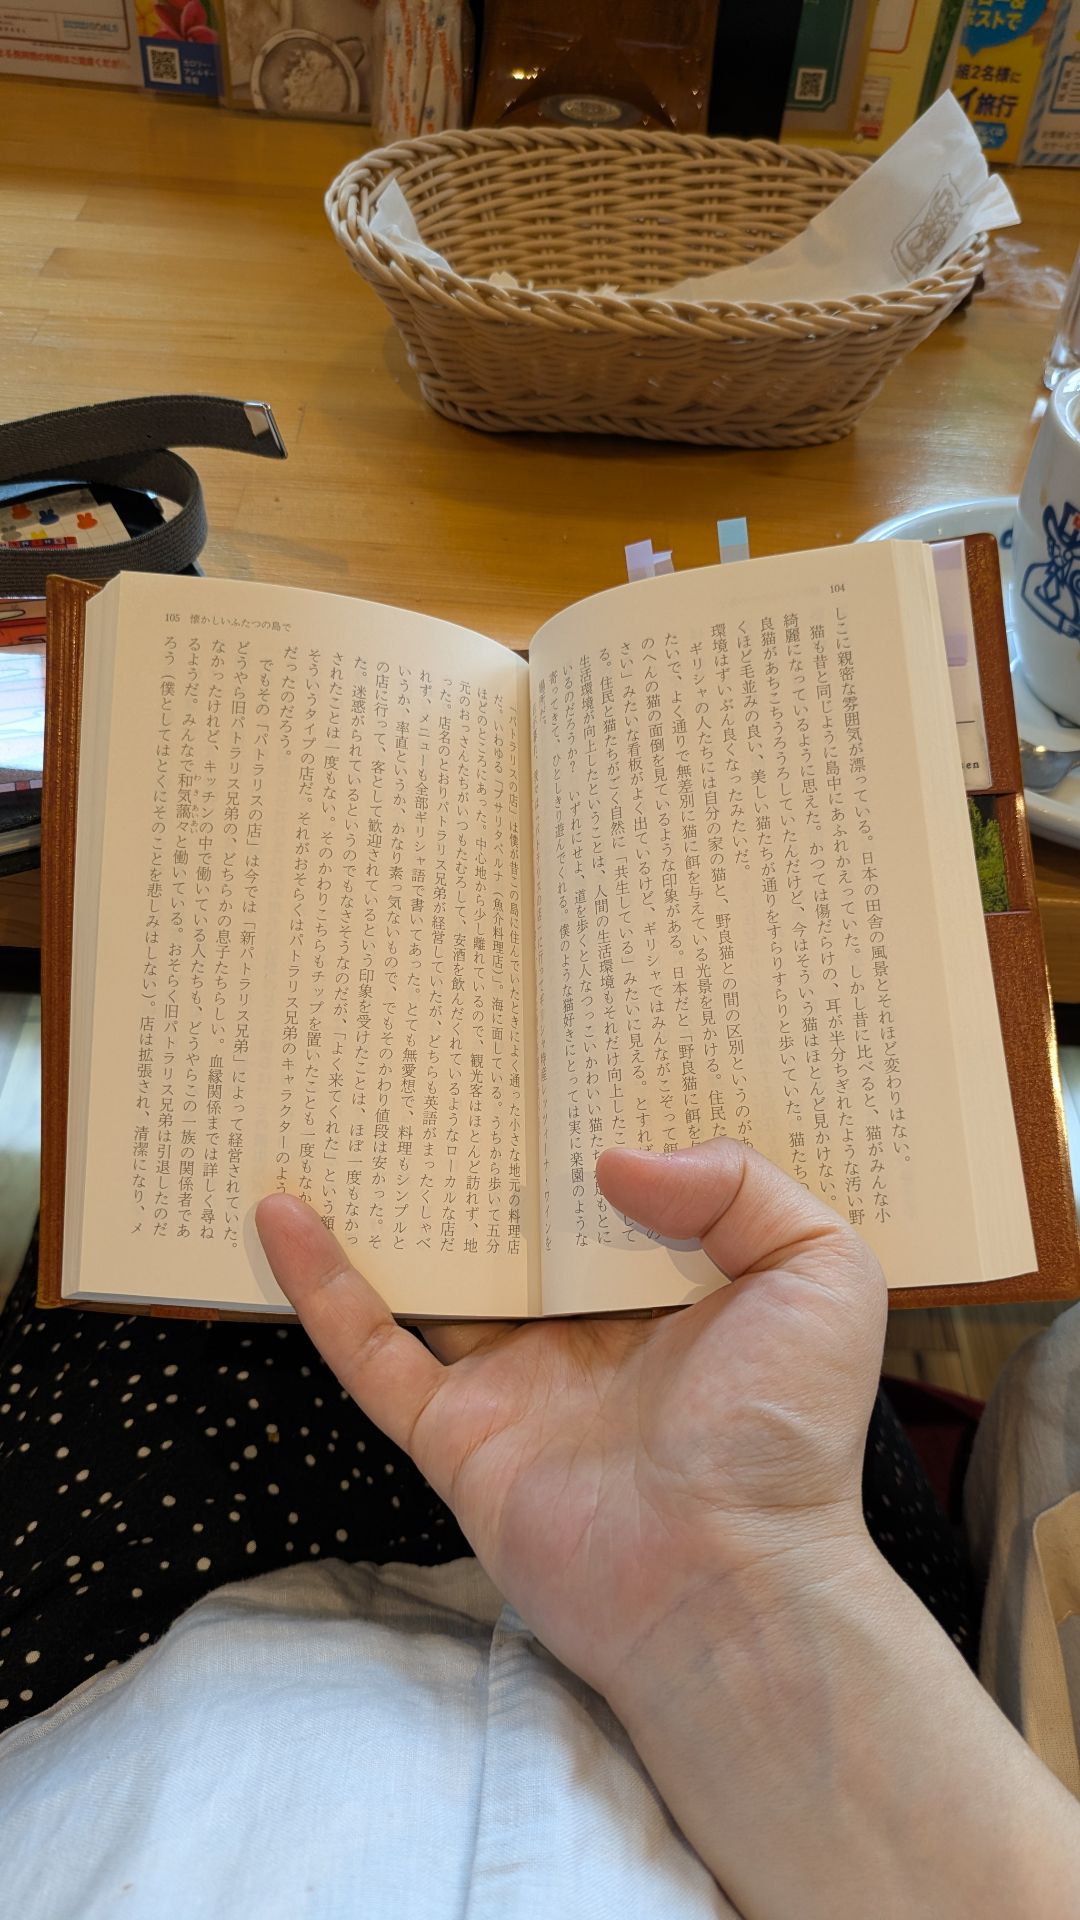 104
しこに親密な雰囲気が漂っている。日本の田舎の風景とそれほど変わりはない。
猫も昔と同じように島中にあふれかえっていた。しかし昔に比べると、猫がみんな小
綺麗になっているように思えた。かつては傷だらけの、耳が半分ちぎれたような汚い野
良猫があちこちうろうろしていたんだけど、今はそういう猫はほとんど見かけない。
くほど毛並みの良い、美しい猫たちが通りをすらりすらりと歩いていた。猫たちの
環境はずいぶん良くなったみたいだ。
ギリシャの人たちには自分の家の猫と、野良猫との間の区別というのがあ
たいで、よく通りで無差別に猫に餌を与えている光景を見かける。住民た
のへんの猫の面倒を見ているような印象がある。日本だと「野良猫に餌を
さい」みたいな看板がよく出ているけど、ギリシャではみんながこぞって餌
る。住民と猫たちがごく自然に「共生している」みたいに見える。とすれば
生活環境が向上したということは、人間の生活環境もそれだけ向上したこ
いるのだろうか? いずれにせよ、道を歩くと人なつっこいかわいい猫たち
寄ってきて、ひとしきり遊んでくれる。僕のような猫好きにとっては実に楽園のような
105 懐かしいふたつの島で
「パトラリスの店」は僕が昔この島に住んでいたときによく通った小さな地元の料理店
だ。いわゆる「プサリタベルナ(魚介料理店)」。海に面している。うちから歩いて五分
ほどのところにあった。中心地から少し離れているので、観光客はほとんど訪れず、地
元のおっさんたちがいつもたむろして、安酒を飲んだくれているようなローカルな店だ
った。店名のとおりパトラリス兄弟が経営していたが、どちらも英語がまったくしゃべ
れず、メニューも全部ギリシャ語で書いてあった。とても無愛想で、料理もシンプルと
いうか、率直というか、かなり素っ気ないもので、でもそのかわり値段は安かった。そ
の店に行って、客として歓迎されているという印象を受けたことは、ほぼ一度もなかっ
た。迷惑がられているというのでもなさそうなのだが、「よく来てくれた」という顔
されたことは一度もない。そのかわりこちらもチップを置いたことも一度もなか
そういうタイプの店だ。それがおそらくはパトラリス兄弟のキャラクターのよう
だったのだろう。
でもその「パトラリスの店」は今では「新パトラリス兄弟」によって経営されていた。
どうやら旧パトラリス兄弟の、どちらかの息子たちらしい。血縁関係までは詳しく尋ね
なかったけれど、キッチンの中で働いている人たちも、どうやらこの一族の関係者であ
るようだ。みんなで和気藹々と働いている。おそらく旧パトラリス兄弟は引退したのだ
わきあいあい
ろう(僕としてはとくにそのことを悲しみはしない)。店は拡張され、清潔になり、メ
カロリー・
アレルギー
情報
ストで
組2名様に
イ旅行